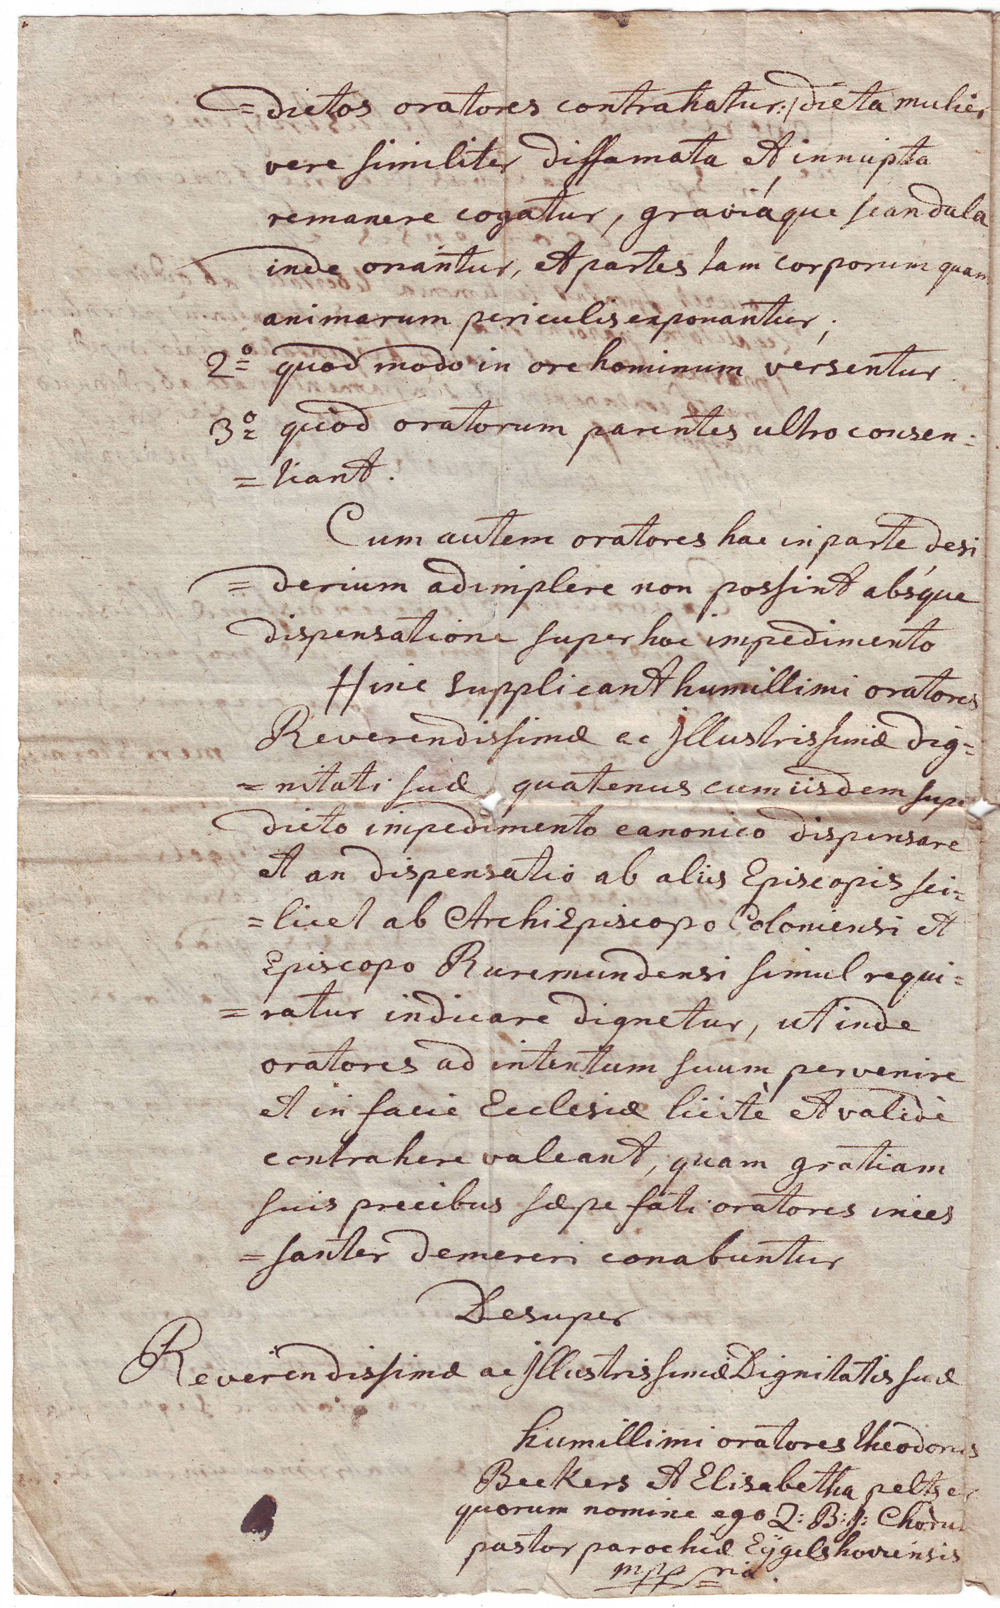 = dictos oratores contrahatur:/ dicta mulier
vere similiter diffamata et innupta
remanere cogatur, graviáque scandula
inde oriantur, et partes tam corporum quam
animarum periculis exponantur;
2º= quod modo in ore hominum versentur
3º= quod oratorum parentes ultro consen=
= tiant.
Cum autem oratores hac in parte desi
= derium adimplere non possint absque
dispensatione super hoc impedimento
Hinc supplicant humillimi oratores
Reverendissimæ ac Jllustrissimæ dig=
= nitati suæ, quatenus cum iisdem supr
dicto impedimento canonico dispensare
et an dispensatio ab aliis Episcopis sci=
= licet ab ArchiEpiscopo Coloniensi et
Episcopo Ruremundensi simul requi=
= ratur indicare dignetur, ut inde
oratores ad intentum suum pervenire
et in facie Ecclesiæ licitè et validè
contrahere valeant, quam gratiam
suis precibus sæpe fati oratores inces
= santer demereri conabuntur
Desuper
Reverendissimæ ac Jllustrissimæ Dignitatis suæ
humillimi oratores theodorus
Beckers et Elisabetha peltser
quorum nomine ego Q: B: J: Chorus
pastor parochiæ Eÿgelshoviensis
mppria.